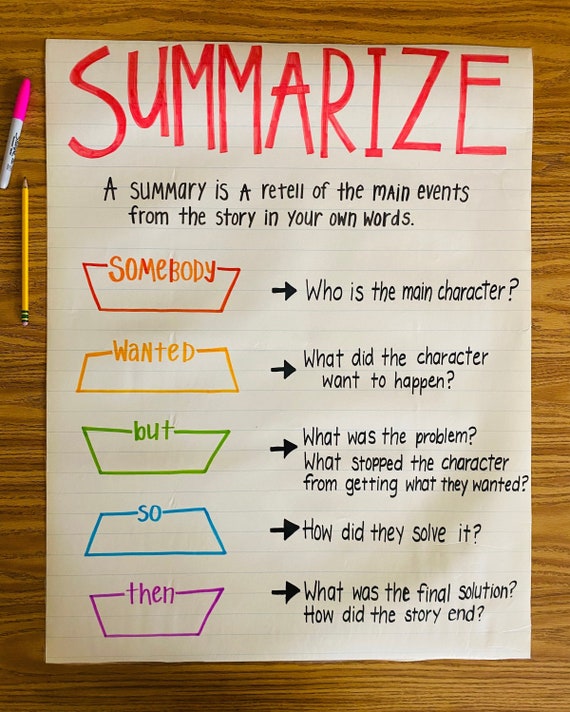 SUMMARIZE
A SUMMARY IS A retell of the main events
from the story in your own words.
SOMEBODY
Who is the main character?
WANTED
What did the character
want to happen?
but
What was the problem?
What stopped the character
from getting what they wanted?
SO
How did they solve it?
then
What was the final solution?
How did the story end?